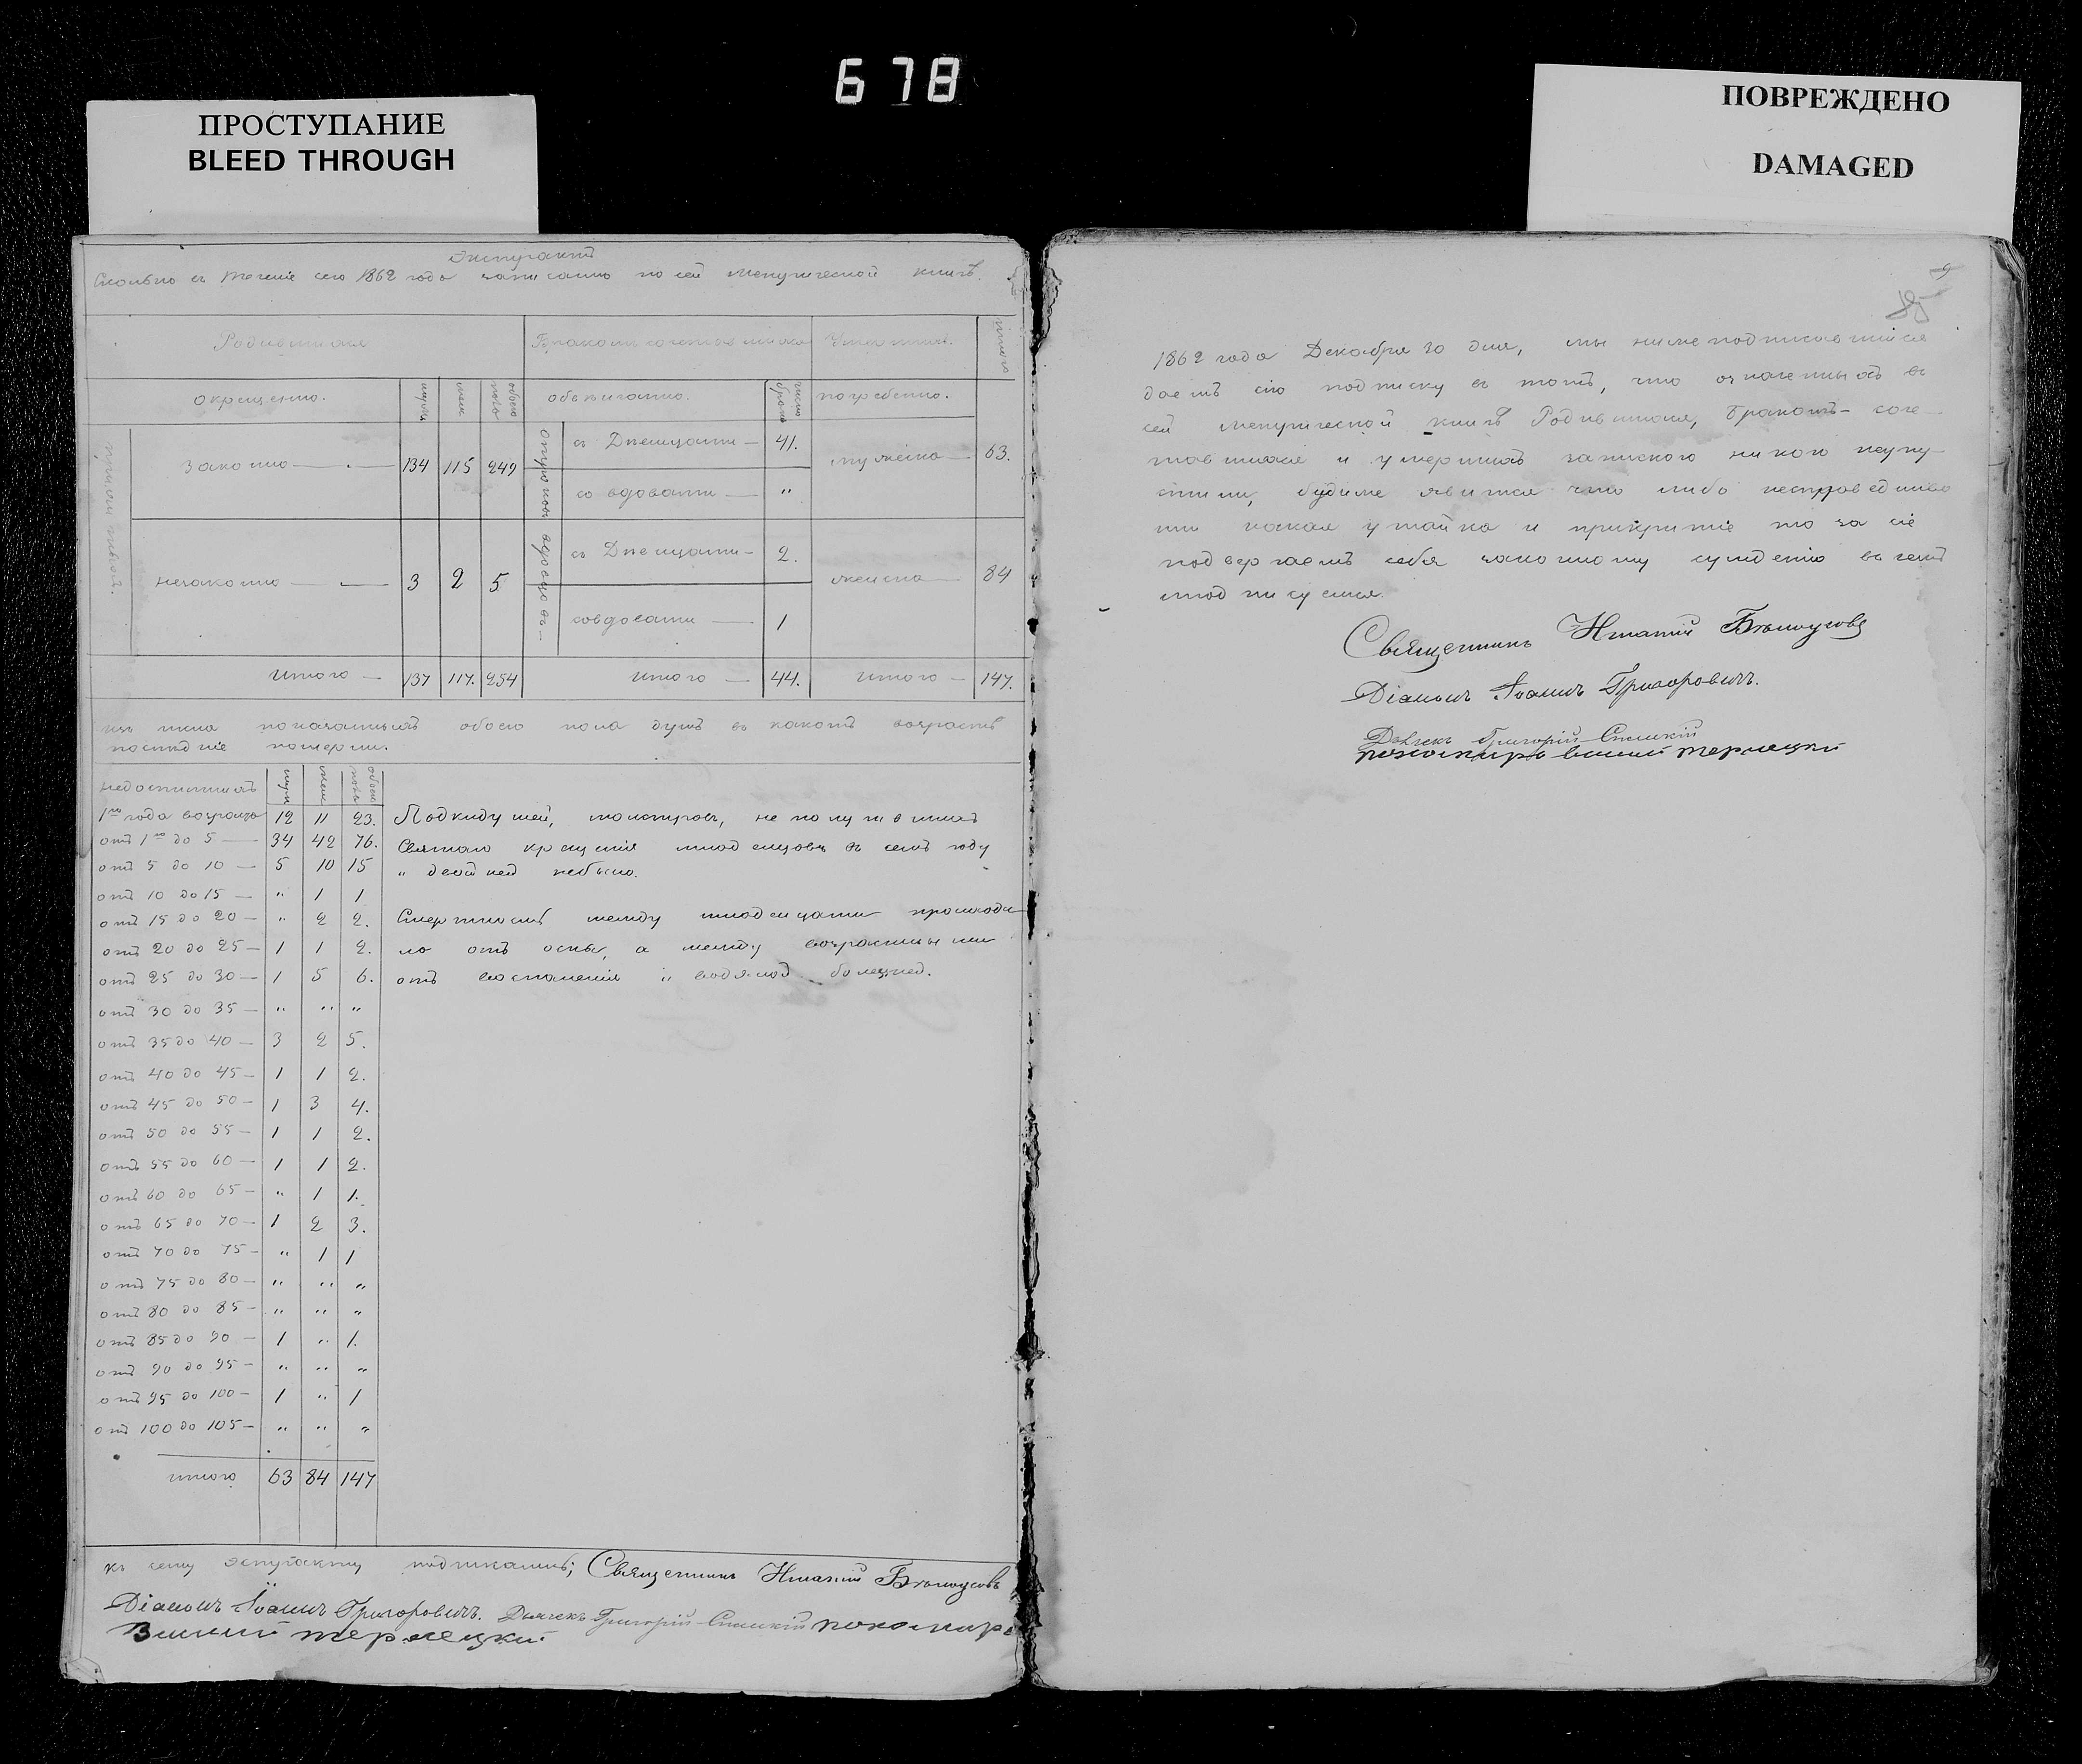 678
ПРОСТУПАНИЕ
BLEED THROUGH
ПОВРЕЖДЕНО
DAMAGED
Экстрактъ
Сколько въ течение сего 1862 года записанно по сей метрической книгѣ.
Родившихся
Бракомъ сочетавшихся
Умершихъ
итого
окрещенно.
мужес
женс
обоего пола
обвенчанно.
число браков
погребенно.
законно — 134 115 249
незаконно — 3 2 5
отроковъ
съ Девицами — 41.
со вдовами — "
вдовцовъ —
съ Девицами — 2.
совдовами — 1
мужеска — 63.
женска — 84
Итого — 137 117. 254
Итого — 44.
Итого — 147.
изъ числа показанныхъ обоего пола душъ въ какомъ возрастѣ
последние померли.
недостигшихъ муж женс обоего пола
1го года возраста 12 11 23.
отъ 1го до 5 — 34 42 76.
отъ 5 до 10 — 5 10 15
отъ 10 до 15 — " 1 1
отъ 15 до 20 — " 2 2.
отъ 20 до 25 — 1 1 2.
отъ 25 до 30 — 1 5 6.
отъ 30 до 35 — " " "
отъ 35 до 40 — 3 2 5.
отъ 40 до 45 — 1 1 2.
отъ 45 до 50 — 1 3 4.
отъ 50 до 55 — 1 1 2.
отъ 55 до 60 — 1 1 2.
отъ 60 до 65 — " 1 1.
отъ 65 до 70 — 1 2 3.
отъ 70 до 75 — " 1 1
отъ 75 до 80 — " " "
отъ 80 до 85 — " " "
отъ 85 до 90 — 1 " 1.
отъ 90 до 95 — " " "
отъ 95 до 100 — 1 " 1
отъ 100 до 105 — " " "
итого 63 84 147
Подкидушей, монстровъ, не получившихъ
Святаго крещенія младенцовъ въ семъ году
" двойней небыло.
Смертность между младенцами происходи
ло отъ оспы, а между возрастными
отъ воспаленія и водяной болезней.
къ сему экстракту подписались; Священникъ Игнатій Бѣлоусовъ
Діаконъ Іоаннъ Григоровичъ. Дьячекъ Григорій Спасскій пономарь
9
1862 года Декабря 30 дня, мы нижеподписавшійся
даемъ сію подписку въ томъ, что означенныхъ въ
сей метрической книгѣ Родившихся, бракомъ- соче
тавшихся и умершихъ запискою никого неупу-
стили, будиже явится что либо несправедливо
или какая утайка и прикрытіе то за сіе
подвергаемъ себя законному сужденію въ чемъ
и подписуемся.
Священникъ Игнатій Бѣлоусовъ
Діаконъ Іоаннъ Григоровичъ.
Дьячекъ Григорій Спасскій